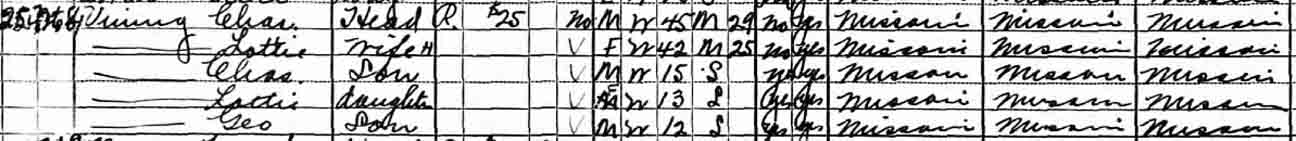 Vining Chas. Head R. $25 No M W 45 M 29 no yes Missouri Missouri Missouri
Lottie Wife H V F W 42 M 25 no yes Missouri Missouri Missouri
Chas. Son V M W 15 S no yes Missouri Missouri Missouri
Lottie daughter V F W 13 S yes yes Missouri Missouri Missouri
Geo Son V M W 12 S yes yes Missouri Missouri Missouri